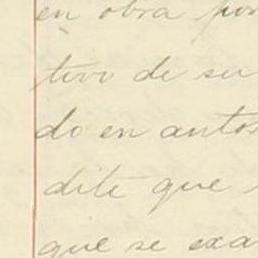 en obra por
tivo de su
do en autos
dite que
que se exa